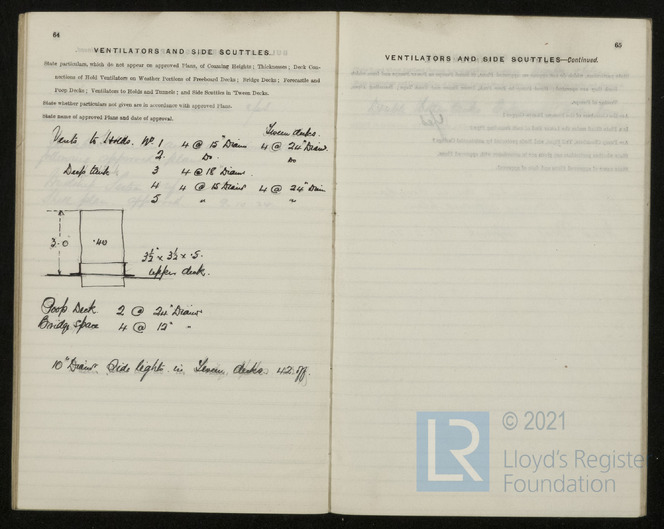 64
VENTILATORS AND SIDE SCUTTLES.
State particulars, which do not appear on approved Plans, of Coaming Heights; Thicknesses; Deck Con-
nections of Hold Ventilators on Weather Portions of Freeboard Decks; Bridge Decks; Forecastle and
Poop Decks; Ventilators to Holds and Tunnels; and Side Scuttles in 'Tween Decks.
State whether particulars not given are in accordance with approved Plans.
State name of approved Plans and date of approval.
Tween decks.
Vents to Holds. No. 1 4 @ 15" Diam 4 @ 24" Diam.
2. Do. Do
Deep tank 3 4 @ 18" Diam.
4 4 @ 15 Diam 4 @ 24" Diam
5 " "
3.0 .40
3½" x 3½ x .5.
upper deck.
Poop Deck 2 @ 24" Diam
Bridge Space 4 @ 12" "
10" Diam Side lights in Tween decks 42 off.
65
VENTILATORS AND SIDE SCUTTLES—Continued.
LR
© 2021
Lloyd's Register
Foundation